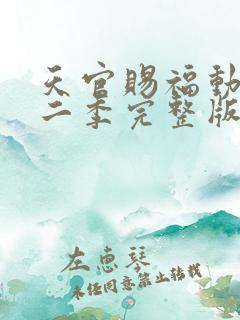 天官赐福动
二季完整版
左惠琴
未经同意禁止转载